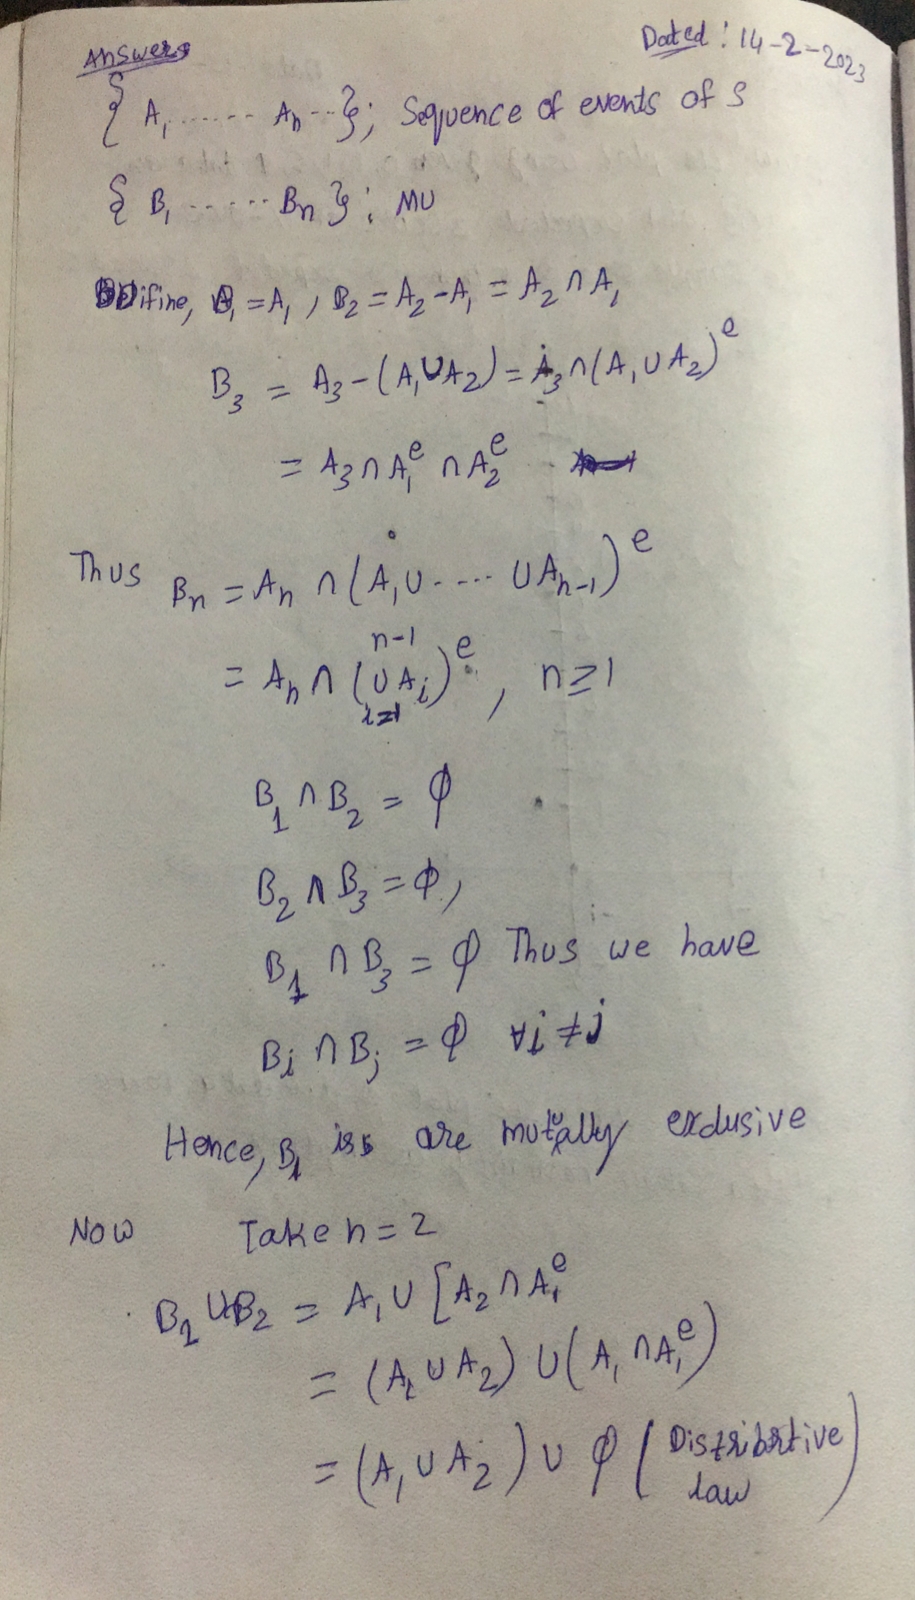 Answer:
Dated: 14-2-2023
{ A₁ ...... Aₙ ... }; Sequence of events of S
{ B₁ ...... Bₙ }: MU
Difine, B₁ = A₁, B₂ = A₂ - A₁ = A₂ ∩ A₁
B₃ = A₃ - (A₁ ∪ A₂) = A₃ ∩ (A₁ ∪ A₂)ᵉ
= A₃ ∩ A₁ᵉ ∩ A₂ᵉ
Thus Bₙ = Aₙ ∩ (A₁ ∪ .... ∪ Aₙ₋₁)ᵉ
n-1
= Aₙ ∩ (∪ Aᵢ)ᵉ, n ≥ 1
i=1
B₁ ∩ B₂ = ϕ
B₂ ∩ B₃ = ϕ,
B₁ ∩ B₃ = ϕ Thus we have
Bᵢ ∩ Bⱼ = ϕ ∀i ≠ j
Hence, B₁ is are mutually exclusive
Now Take n = 2
B₂ ∪ B₂ = A₁ ∪ [A₂ ∩ A₁ᵉ
= (A₁ ∪ A₂) ∪ (A₁ ∩ A₁ᵉ)
= (A₁ ∪ A₂) ∪ ϕ (Distribrtive
law)